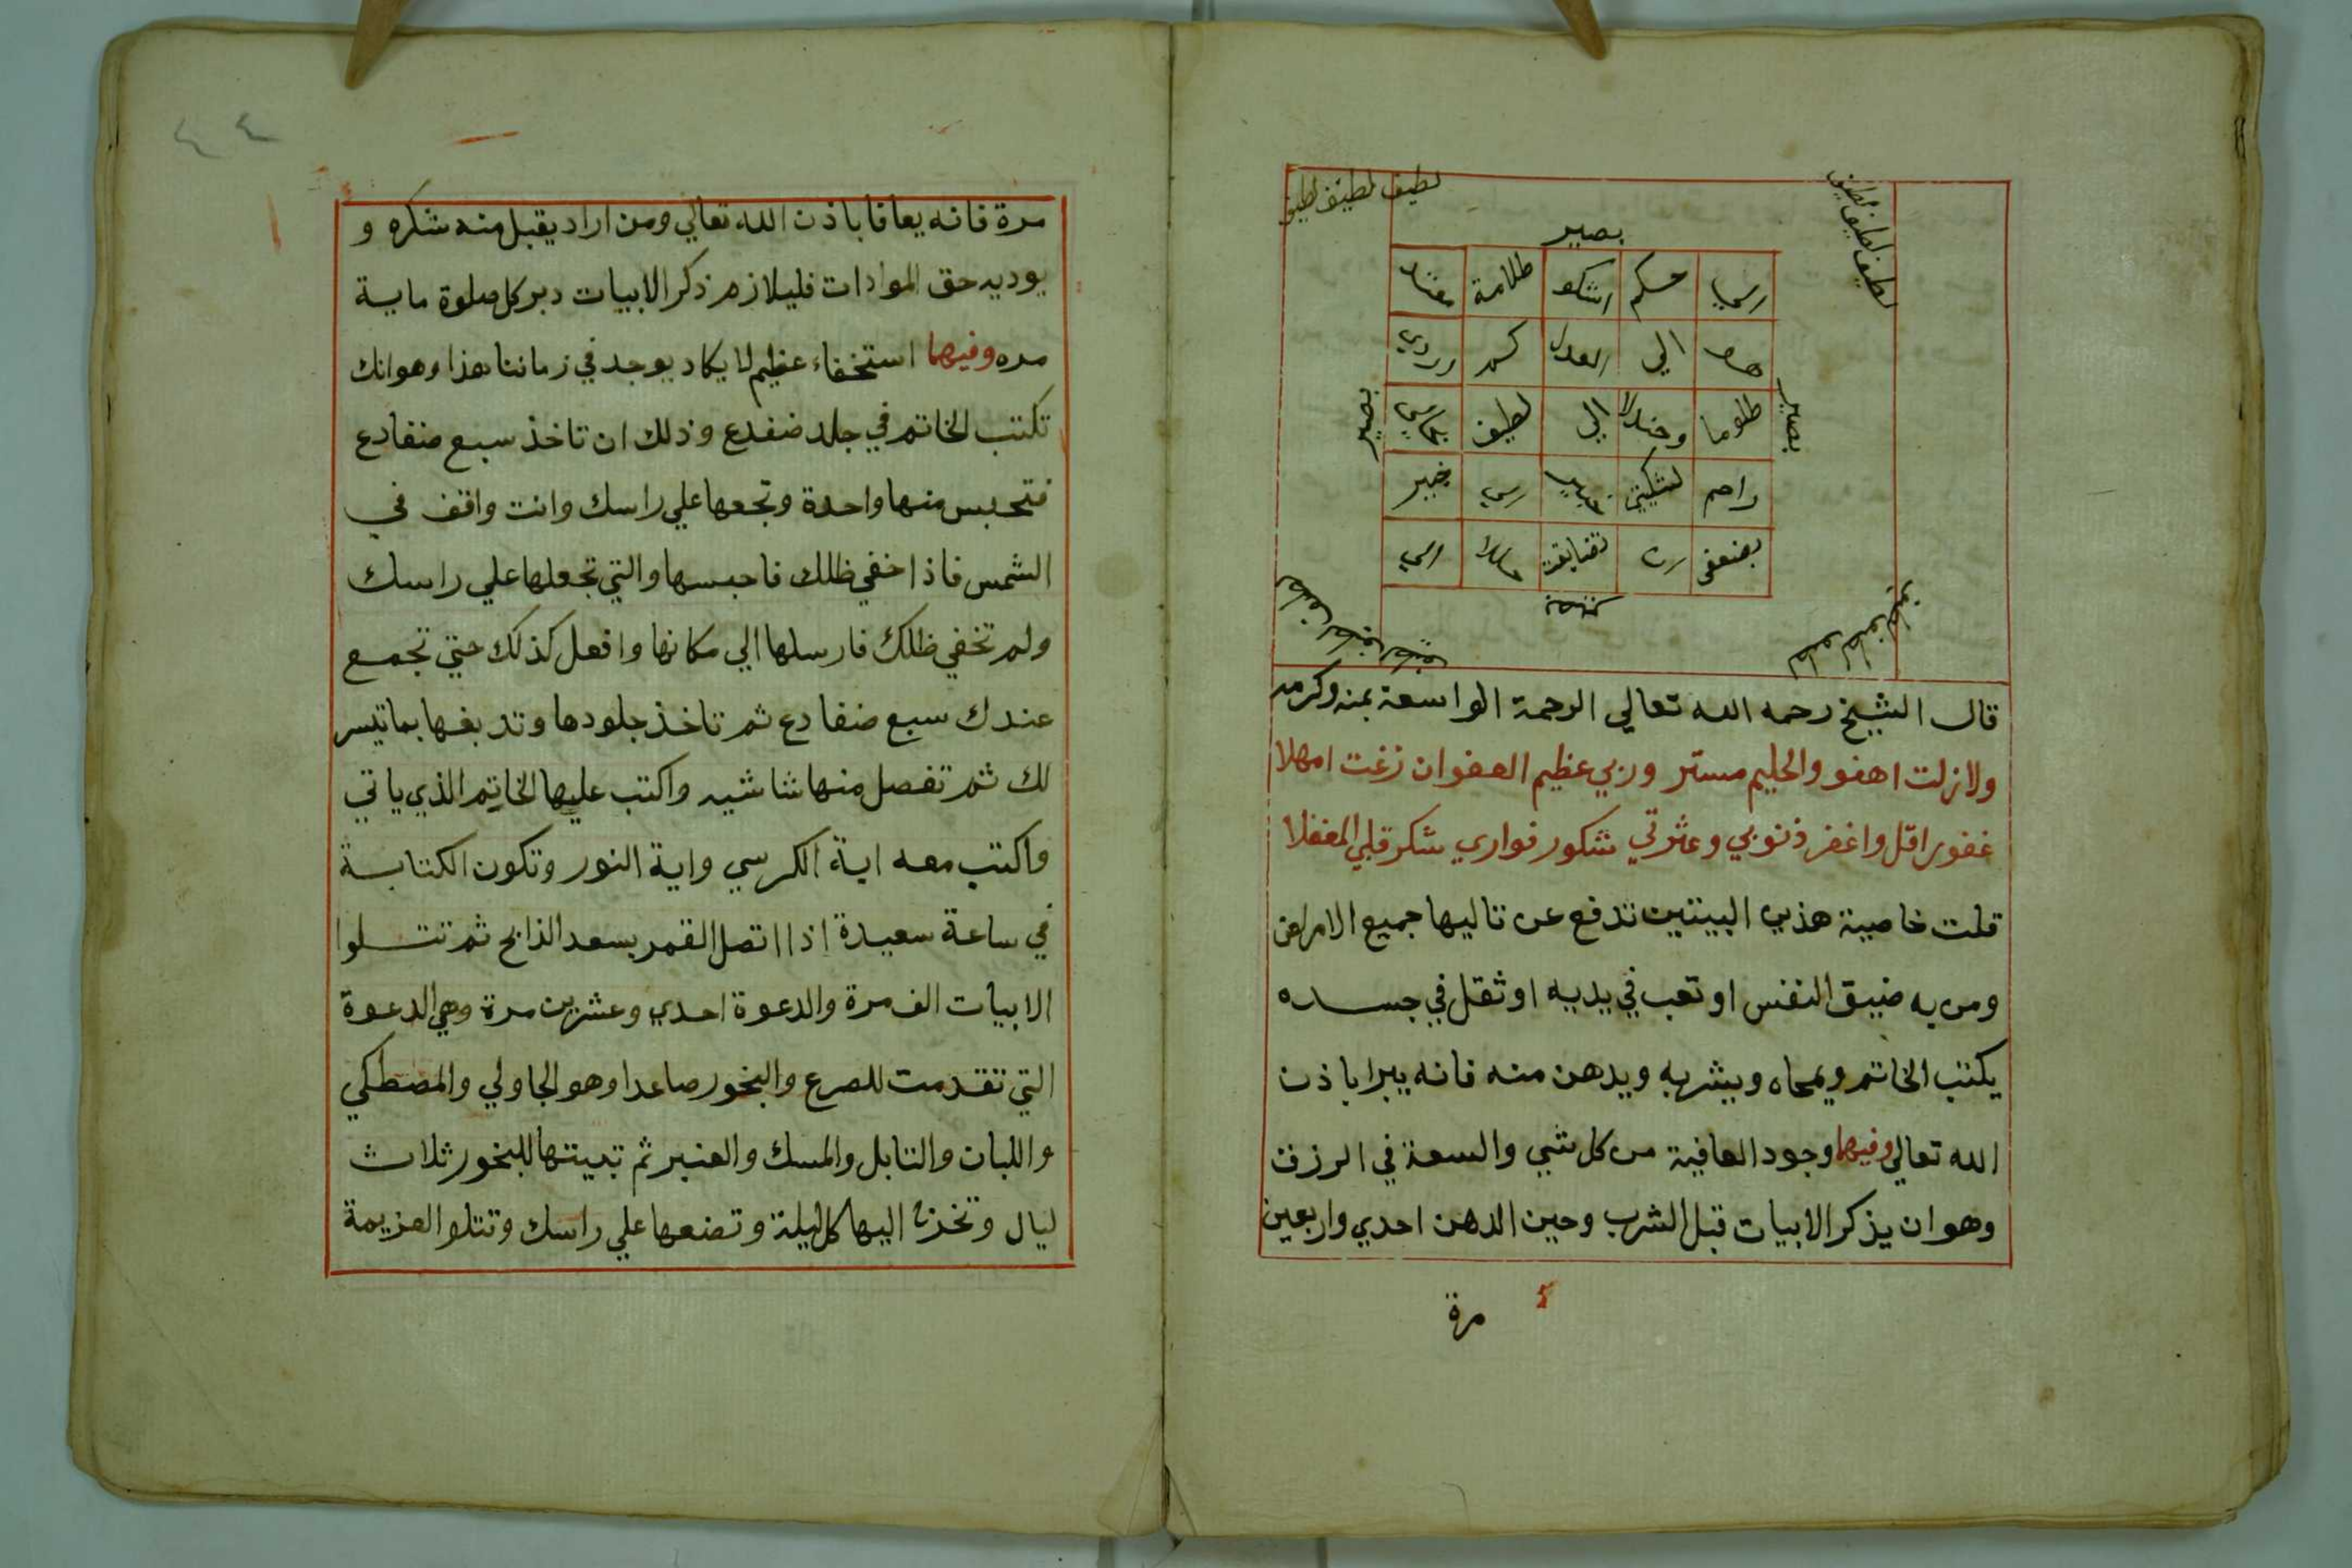 لطيف لطيف لطيف
لطيف لطيف لطيف
بصير
حكم اشكو ظلامة
الي العدل
بصير
ظلوما الي لطيف
بصير
راحم خبير
بضعفي
قال الشيخ رحمه الله تعالي الرحمة الواسعة بمنه وكرمه
ولا زلت اهفو والحليم مستر وربي عظيم العفو ان زغت امهلا
غفور اقل واغفر ذنوبي وعثرتي شكور فواري شكر قلبي المغفلا
قلت خاصية هذين البيتين تدفع عن تاليها جميع الامراض
ومن به ضيق النفس او تعب في يديه او ثقل في جسده
يكتب الخاتم ويمحاه ويشربه ويدهن منه فانه يبرا باذن
الله تعالي وفيهما وجود العافية من كل شي والسعة في الرزق
وهو ان يذكر الابيات قبل الشرب وحين الدهن احدي واربعين
مرة
٤٤
مرة فانه يعافا باذن الله تعالي ومن اراد يقبل منه شكره و
يوديه حق الموادات فليلازم ذكر الابيات دبر كل صلوة ماية
مره وفيهما استخفاء عظيم لا يكاد يوجد في زماننا هذا وهو انك
تكتب الخاتم في جلد ضفدع وذلك ان تاخذ سبع ضفادع
فتحبس منها واحدة وتجعها علي راسك وانت واقف في
الشمس فاذا خفي ظلك فاحبسها والتي تجعلها علي راسك
ولم تخفي ظلك فارسلها الي مكانها وافعل كذلك حتي تجمع
عندك سبع ضفادع ثم تاخذ جلودها وتدبغها بما تيسر
لك ثم تفصل منها شاشيه واكتب عليها الخاتم الذي ياتي
واكتب معه اية الكرسي واية النور وتكون الكتابة
في ساعة سعيدة اذا اتصل القمر بسعد الذابح ثم تتلوا
الابيات الف مرة والدعوة احدي وعشرين مرة وهي الدعوة
التي تقدمت للصرع والبخور صاعدا وهو الجاولي والمصطكي
واللبان والتابل والمسك والعنبر ثم تبيتها للبخور ثلاث
ليال وتخذها اليها كل ليلة وتضعها علي راسك وتتلو العزيمة